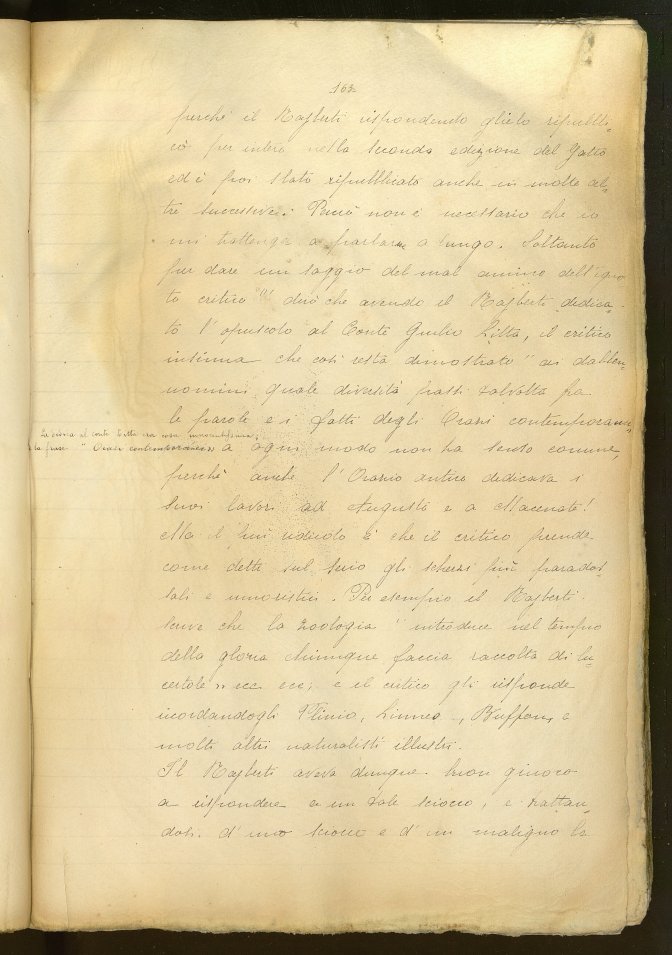 162
perché il Rajberti rispondendo glielo ripubbli-
cò per intero nella seconda edizione del Gatto
ed è poi stato ripubblicato anche in molte al-
tre successive; Perciò non è necessario che io
mi trattenga a parlarne a lungo. Soltanto
per dare un saggio del mal animo dell'igno-
to critico (1) dirò che avendo il Rajberti dedica-
to l'opuscolo al Conte Giulio Litta, il critico
insinua che così resta dimostrato " ai dabben-
uomini quale diversità passi talvolta fra
le parole e i fatti degli Orazi contemporanei
La dedica al conte Litta era cosa innocentissima;
la frase " Orazi contemporanei »
a ogni modo non ha senso comune,
perché anche l'Orazio antico dedicava i
suoi lavori ad Augusto e a Mecenate!
Ma il più ridicolo è che il critico prende
come detti sul serio gli scherzi più parados-
sali e umoristici. Per esempio il Rajberti
scrive che la zoologia " introduce nel tempio
della gloria chiunque faccia raccolta di lu-
certole » ecc ecc; e il critico gli risponde
ricordandogli Plinio, Linneo, Buffon, e
molti altri naturalisti illustri.
Il Rajberti aveva dunque buon giuoco
a rispondere a un tale sciocco, e trattan-
dosi d'uno sciocco e d'un maligno la